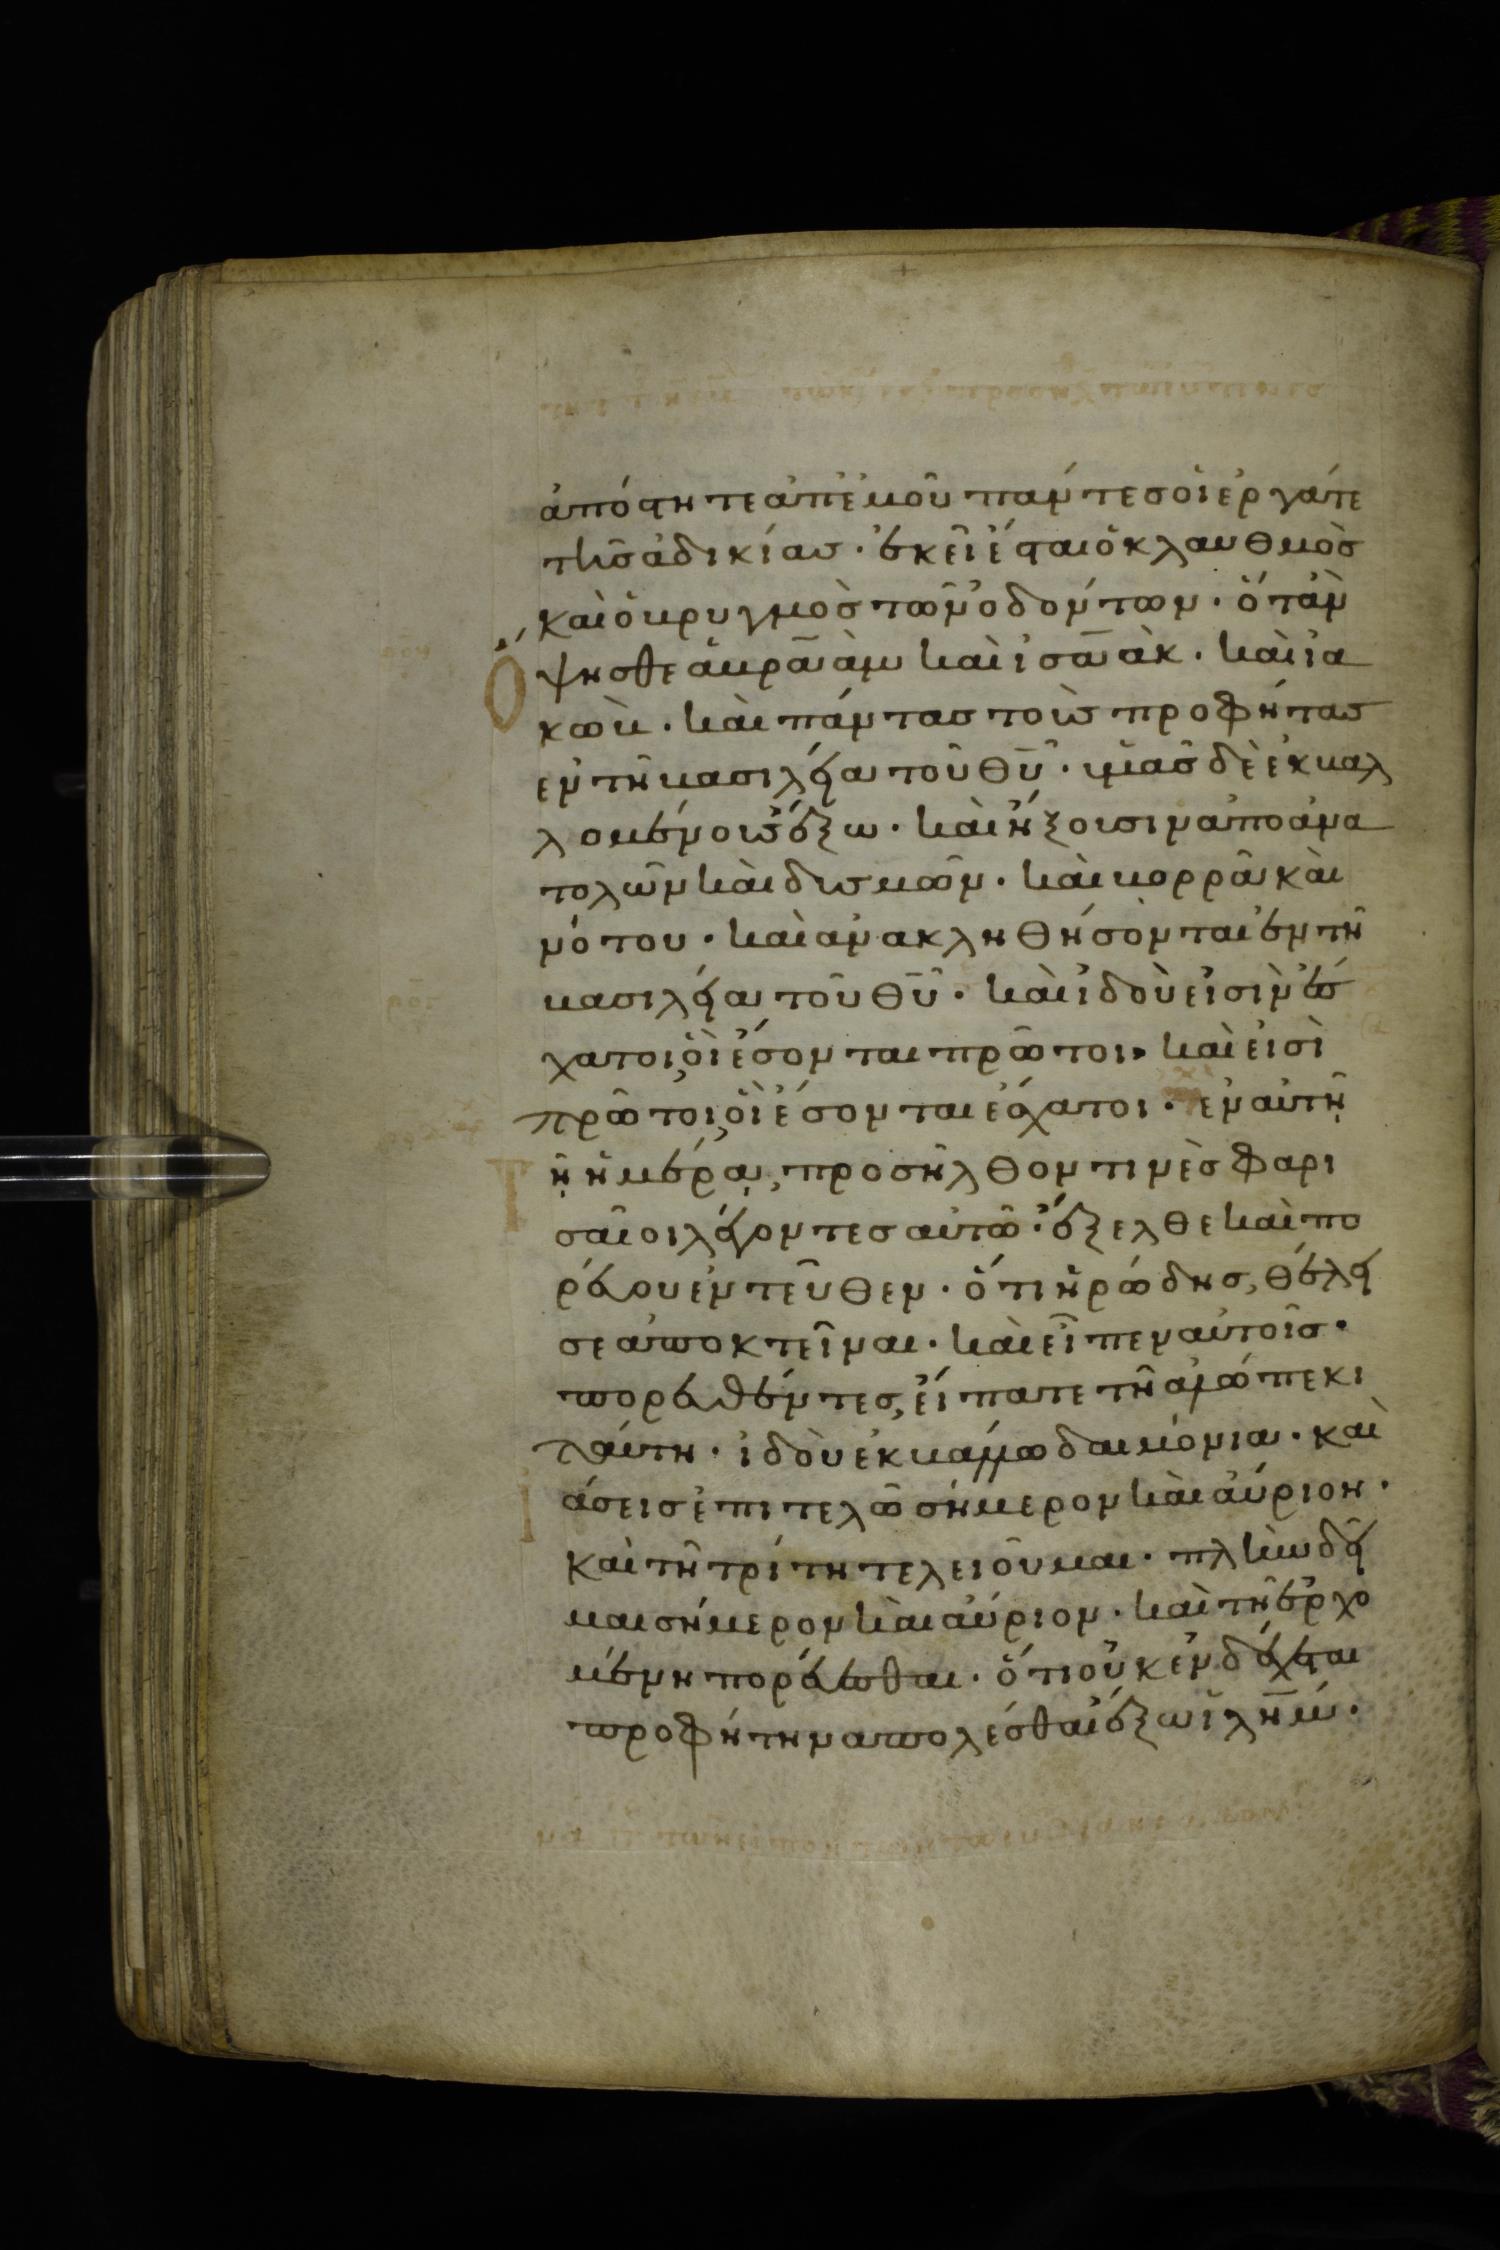 ἀπόστητε ἀπ' ἐμοῦ πάντες οἱ ἐργάτε
τῆς ἀδικίας · ἐκεῖ ἔσται ὁ κλαυθμὸς
καὶ ὁ βρυγμὸς τῶν ὀδόντων · ὅταν
ὄψησθε ἀβραὰμ καὶ ἰσαὰκ · καὶ ἰα
κὼβ · καὶ πάντας τοὺς προφήτας
ἐν τῆ βασιλεία τοῦ θ̅υ̅ · ὑμᾶς δὲ ἐκβαλ
λομένους ἔξω · καὶ ἥξουσιν ἀπο ἀνα
τολῶν καὶ δυσμῶν · καὶ βορρᾶ καὶ
νότου · καὶ ἀνακληθήσονται ἐν τῆ
βασιλεία τοῦ θ̅υ̅ · καὶ ἰδοὺ εἰσὶν ἔσ
χατοι, οἳ ἔσονται πρῶτοι · καὶ εἰσὶ
πρῶτοι, οἳ ἔσονται ἔσχατοι · ἐν αὐτῇ
ῇ ἡμέρᾳ, προσῆλθον τινὲς φαρι
σαῖοι λέγοντες αὐτῶ · ἔξελθε καὶ πο
ρεύου ἐντεῦθεν · ὅτι ἡρώδης, θέλει
σε ἀποκτεῖναι · καὶ εἶπεν αὐτοῖς ·
πορευθέντες, εἴπατε τῆ ἀλώπεκι
ταύτη · ἰδοὺ ἐκβάλλω δαιμόνια · καὶ
ἰάσεις ἐπιτελῶ σήμερον καὶ αὔριον ·
καὶ τῆ τρίτη τελειοῦμαι · πλὴν δεῖ
με σήμερον καὶ αὔριον · καὶ τῆ ἐρχο
μένη πορεύεσθαι · ὅτι οὐκ ἐνδέχεται
προφήτην ἀπολέσθαι ἔξω ἰ̅λ̅η̅μ̅ ·